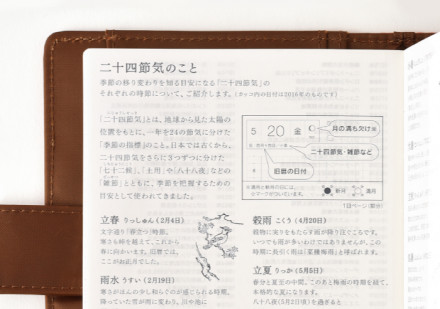 二十四節気のこと
季節の移り変わりを知る目安になる「二十四節気」の
それぞれの時節について、ご紹介します。(カッコ内の日付は2016年のものです)
「二十四節気」とは、地球から見た太陽
の位置をもとに、一年を24の節気に分けた
「季節の指標」のこと。日本では古くから、
二十四節気をさらに3つずつに分けた
「七十二候」、「土用」や「八十八夜」などの
「雑節」とともに、季節を把握するための
目安として使われてきました。
5 20 金
月の満ち欠け※
二十四節気・雑節など
旧暦の日付
新月
満月
1日ページ(部分)
立春 りっしゅん(2月4日)
文字通り「春立つ」時節。
寒さも峠を越えて、これから
春に向かいます。旧暦では、
ここがお正月でした。
雨水 うすい(2月19日)
寒さがほんの少し和らぐのが感じられる時期。
降っていた雪が雨に変わり、川や池に
穀雨 こくう(4月20日)
穀物に実りをもたらす雨が降り注ぐころです。
いつでも雨が多いわけではありませんが、この
時期に長引く雨は「菜種梅雨」と呼ばれます。
立夏 りっか(5月5日)
春分と夏至の中間。このあと梅雨の時期を経て、
本格的な夏になります。
八十八夜(5月2日頃)を過ぎると